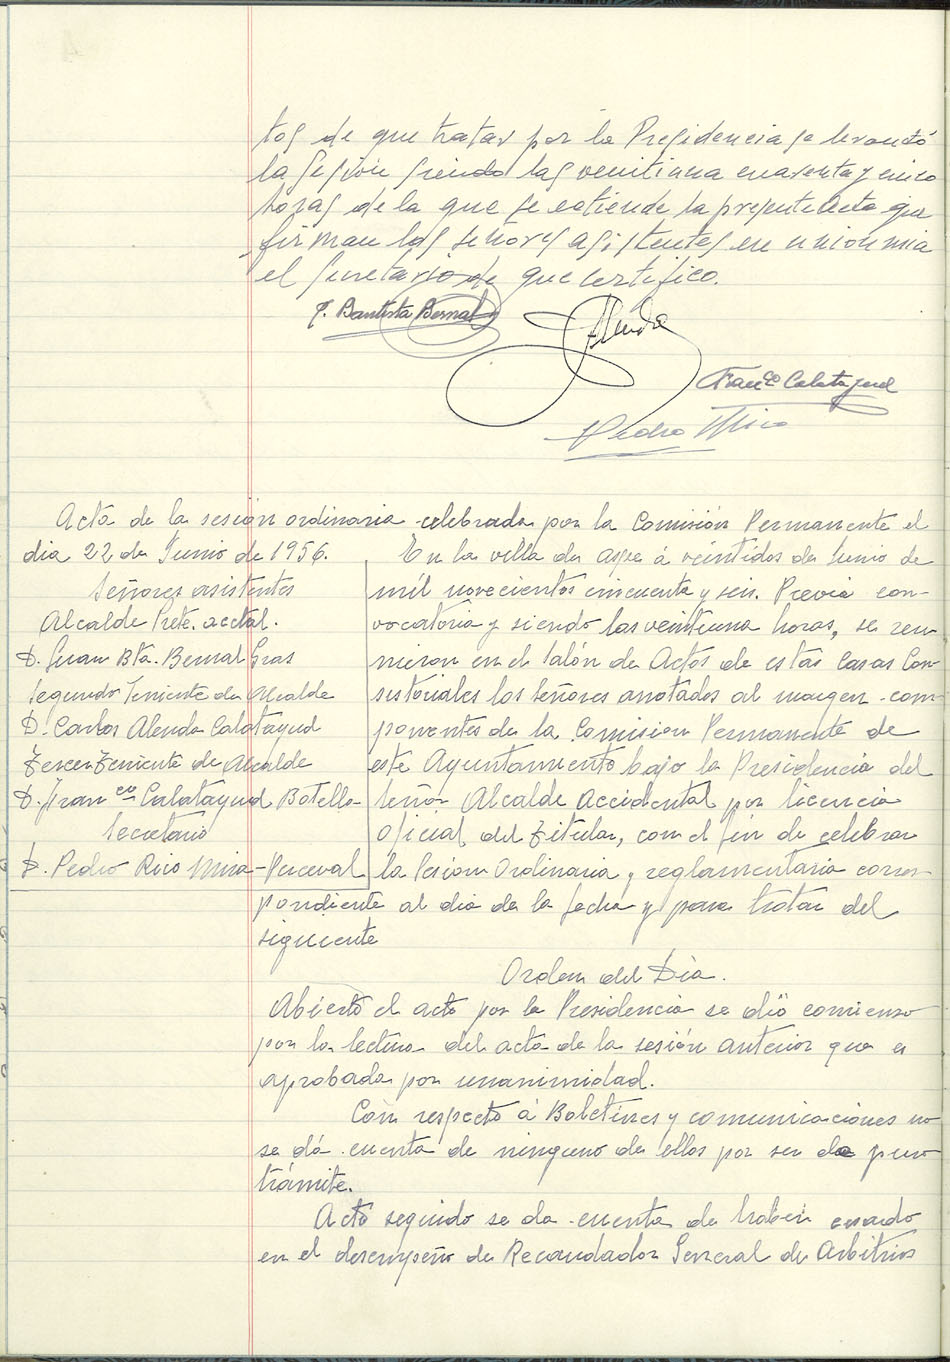 tos de que tratar por la Presidencia se levantó
la Sesión siendo las veintiuna cuarenta y cinco
horas de la que se extiende la presente Acta que
firman los señores asistentes en union mia
el Secretario de que certifico.
J. Bautista Bernal
Alenda
Franco Calatayud
Pedro Rico
Acta de la sesión ordinaria celebrada por la Comisión Permanente el
dia 22 de Junio de 1956.
Señores asistentes
Alcalde Prete. acctal.
D. Juan Bta. Bernal Gras
Segundo Teniente de Alcalde
D. Carlos Alenda Calatayud
Tercer Teniente de Alcalde
D. Franco Calatayud Botella
Secretario
D. Pedro Rico Mira-Perceval
En la villa de Aspe á veintidos de Junio de
mil novecientos cincuenta y seis. Previa con-
vocatoria y siendo las veintiuna horas, se reu-
nieron en el Salón de Actos de estas Casas Con-
sistoriales los señores anotados al margen com-
ponentes de la Comision Permanente de
este Ayuntamiento bajo la Presidencia del
Señor Alcalde Accidental por licencia
oficial del Titular, con el fin de celebrar
la Sesion Ordinaria y reglamentaria corres-
pondiente al dia de la fecha y para tratar del
siguiente
Orden del Dia.
Abierto el acto por la Presidencia se dió comienzo
por la lectura del acta de la sesión anterior que es
aprobada por unanimidad.
Con respecto á Boletines y comunicaciones no
se dá cuenta de ninguno de ellos por ser de puro
trámite.
Acto seguido se da cuenta de haber cesado
en el desempeño de Recaudador General de Arbitrios